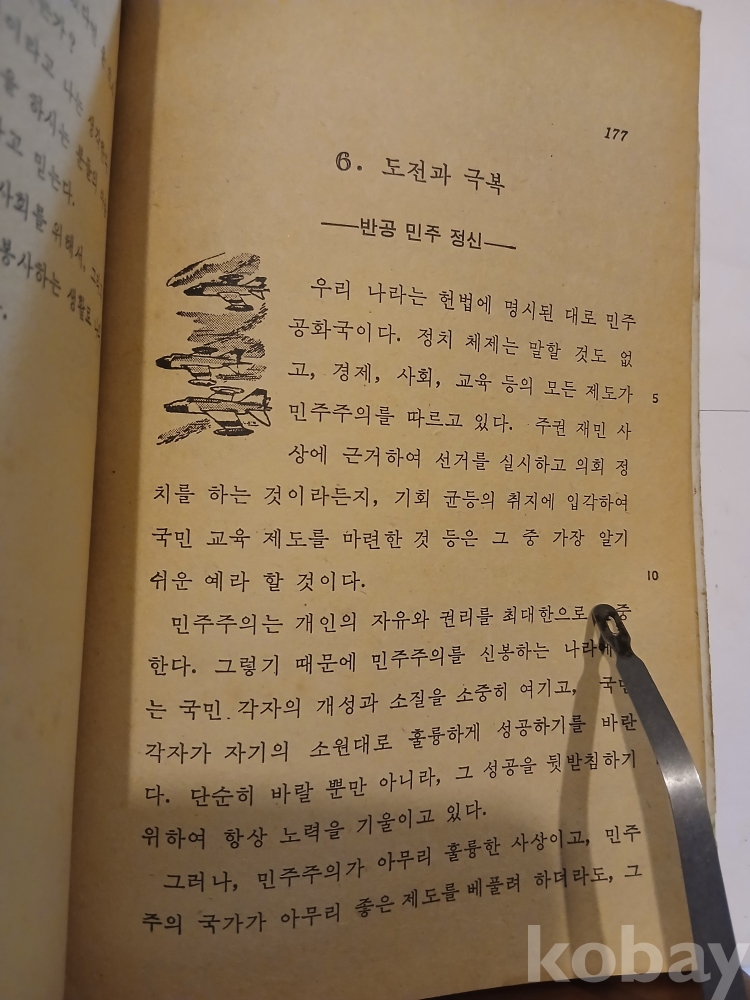 177
6. 도전과 극복
──반공 민주 정신──
우리 나라는 헌법에 명시된 대로 민주
공화국이다. 정치 체제는 말할 것도 없
고, 경제, 사회, 교육 등의 모든 제도가 5
민주주의를 따르고 있다. 주권 재민 사
상에 근거하여 선거를 실시하고 의회 정
치를 하는 것이라든지, 기회 균등의 취지에 입각하여
국민 교육 제도를 마련한 것 등은 그 중 가장 알기
쉬운 예라 할 것이다. 10
민주주의는 개인의 자유와 권리를 최대한으로 중
한다. 그렇기 때문에 민주주의를 신봉하는
는 국민 각자의 개성과 소질을 소중히 여기고, 국민
각자가 자기의 소원대로 훌륭하게 성공하기를 바란
다. 단순히 바랄 뿐만 아니라, 그 성공을 뒷받침하기
위하여 항상 노력을 기울이고 있다.
그러나, 민주주의가 아무리 훌륭한 사상이고, 민주
주의 국가가 아무리 좋은 제도를 베풀려 하더라도, 그
이라고 나는
을 하시는 분들의
고 믿는다.
사회를 위해서,
봉사하는 생활로
kobay